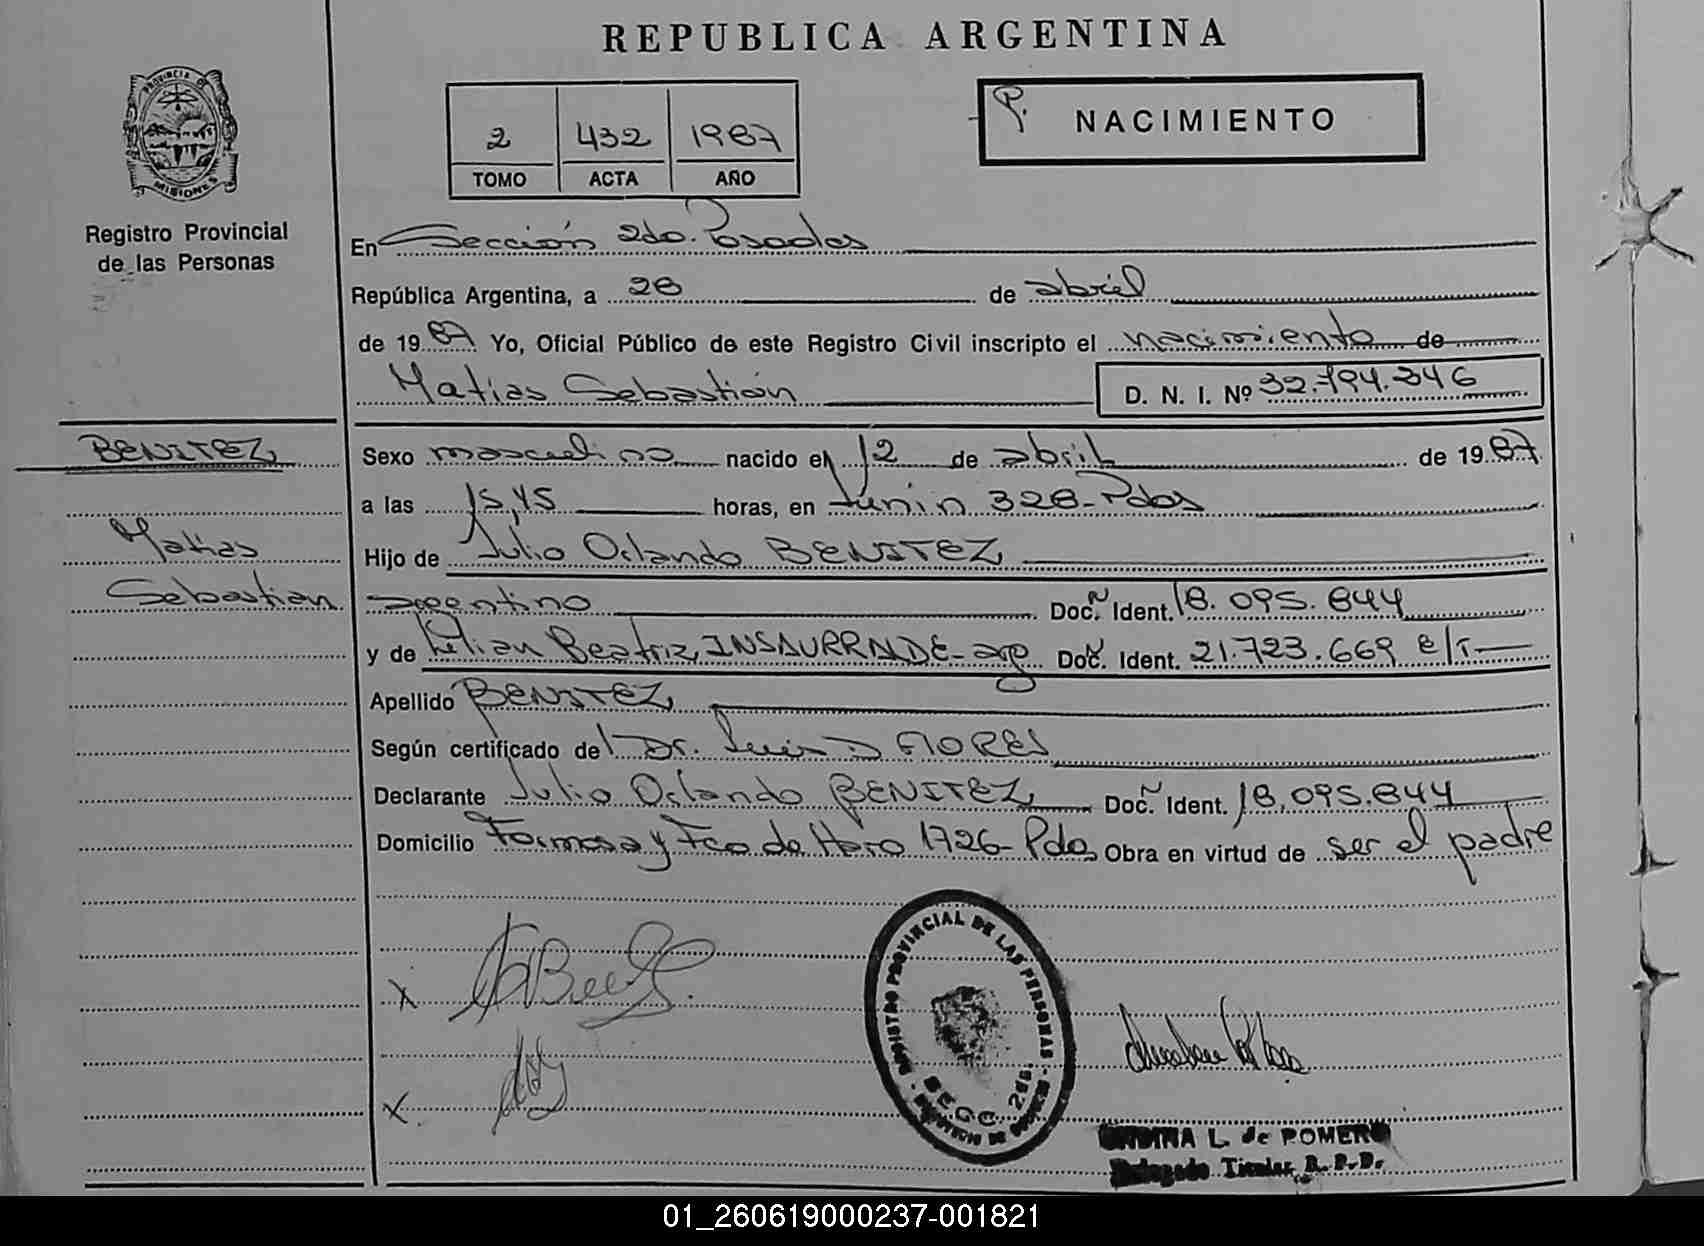 REPUBLICA ARGENTINA
PROVINCIA DE
MISIONES
Registro Provincial
de las Personas
2 432 1987
TOMO ACTA AÑO
P. NACIMIENTO
En Sección 2do. Posadas
República Argentina, a 28 de abril
de 1987 Yo, Oficial Público de este Registro Civil inscripto el nacimiento de
Matias Sebastián D. N. I. Nº 32.794.346
BENITEZ
Matias
Sebastian
Sexo masculino nacido el 12 de abril de 1987
a las 15,45 horas, en Junin 328-Pdas
Hijo de Julio Orlando BENITEZ
argentino Doc. Ident. 18.095.844
y de Lilian Beatriz INSAURRALDE- arg Doc. Ident. 21.723.669 e/t
Apellido BENITEZ
Según certificado del Dr. Luis D FLORES
Declarante Julio Orlando BENITEZ Doc. Ident. 18,095.844
Domicilio Formosa y Fco de Haro 1726- Pdas Obra en virtud de ser el padre
X
X
REGISTRO PROVINCIAL DE LAS PERSONAS
L. de POMERO
Titular R. P. D.
01_260619000237-001821